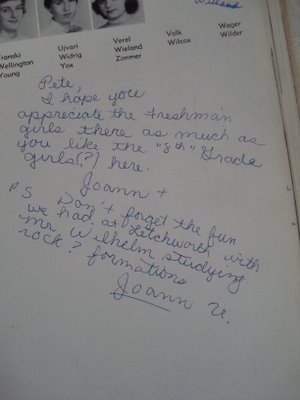 Wieland
Ujvari Verel Volk Wager
Wellington Widrig Wieland Wilcox Wilder
Young Yox Zimmer
Pete,
I hope you
appreciate the freshman
girls there as much as
you like the "8th" Grade
girls(?) here.
Joann
P.S. Don't forget the fun
we had at Letchworth with
Mr. Wilhelm studying
rock? formations
Joann U.